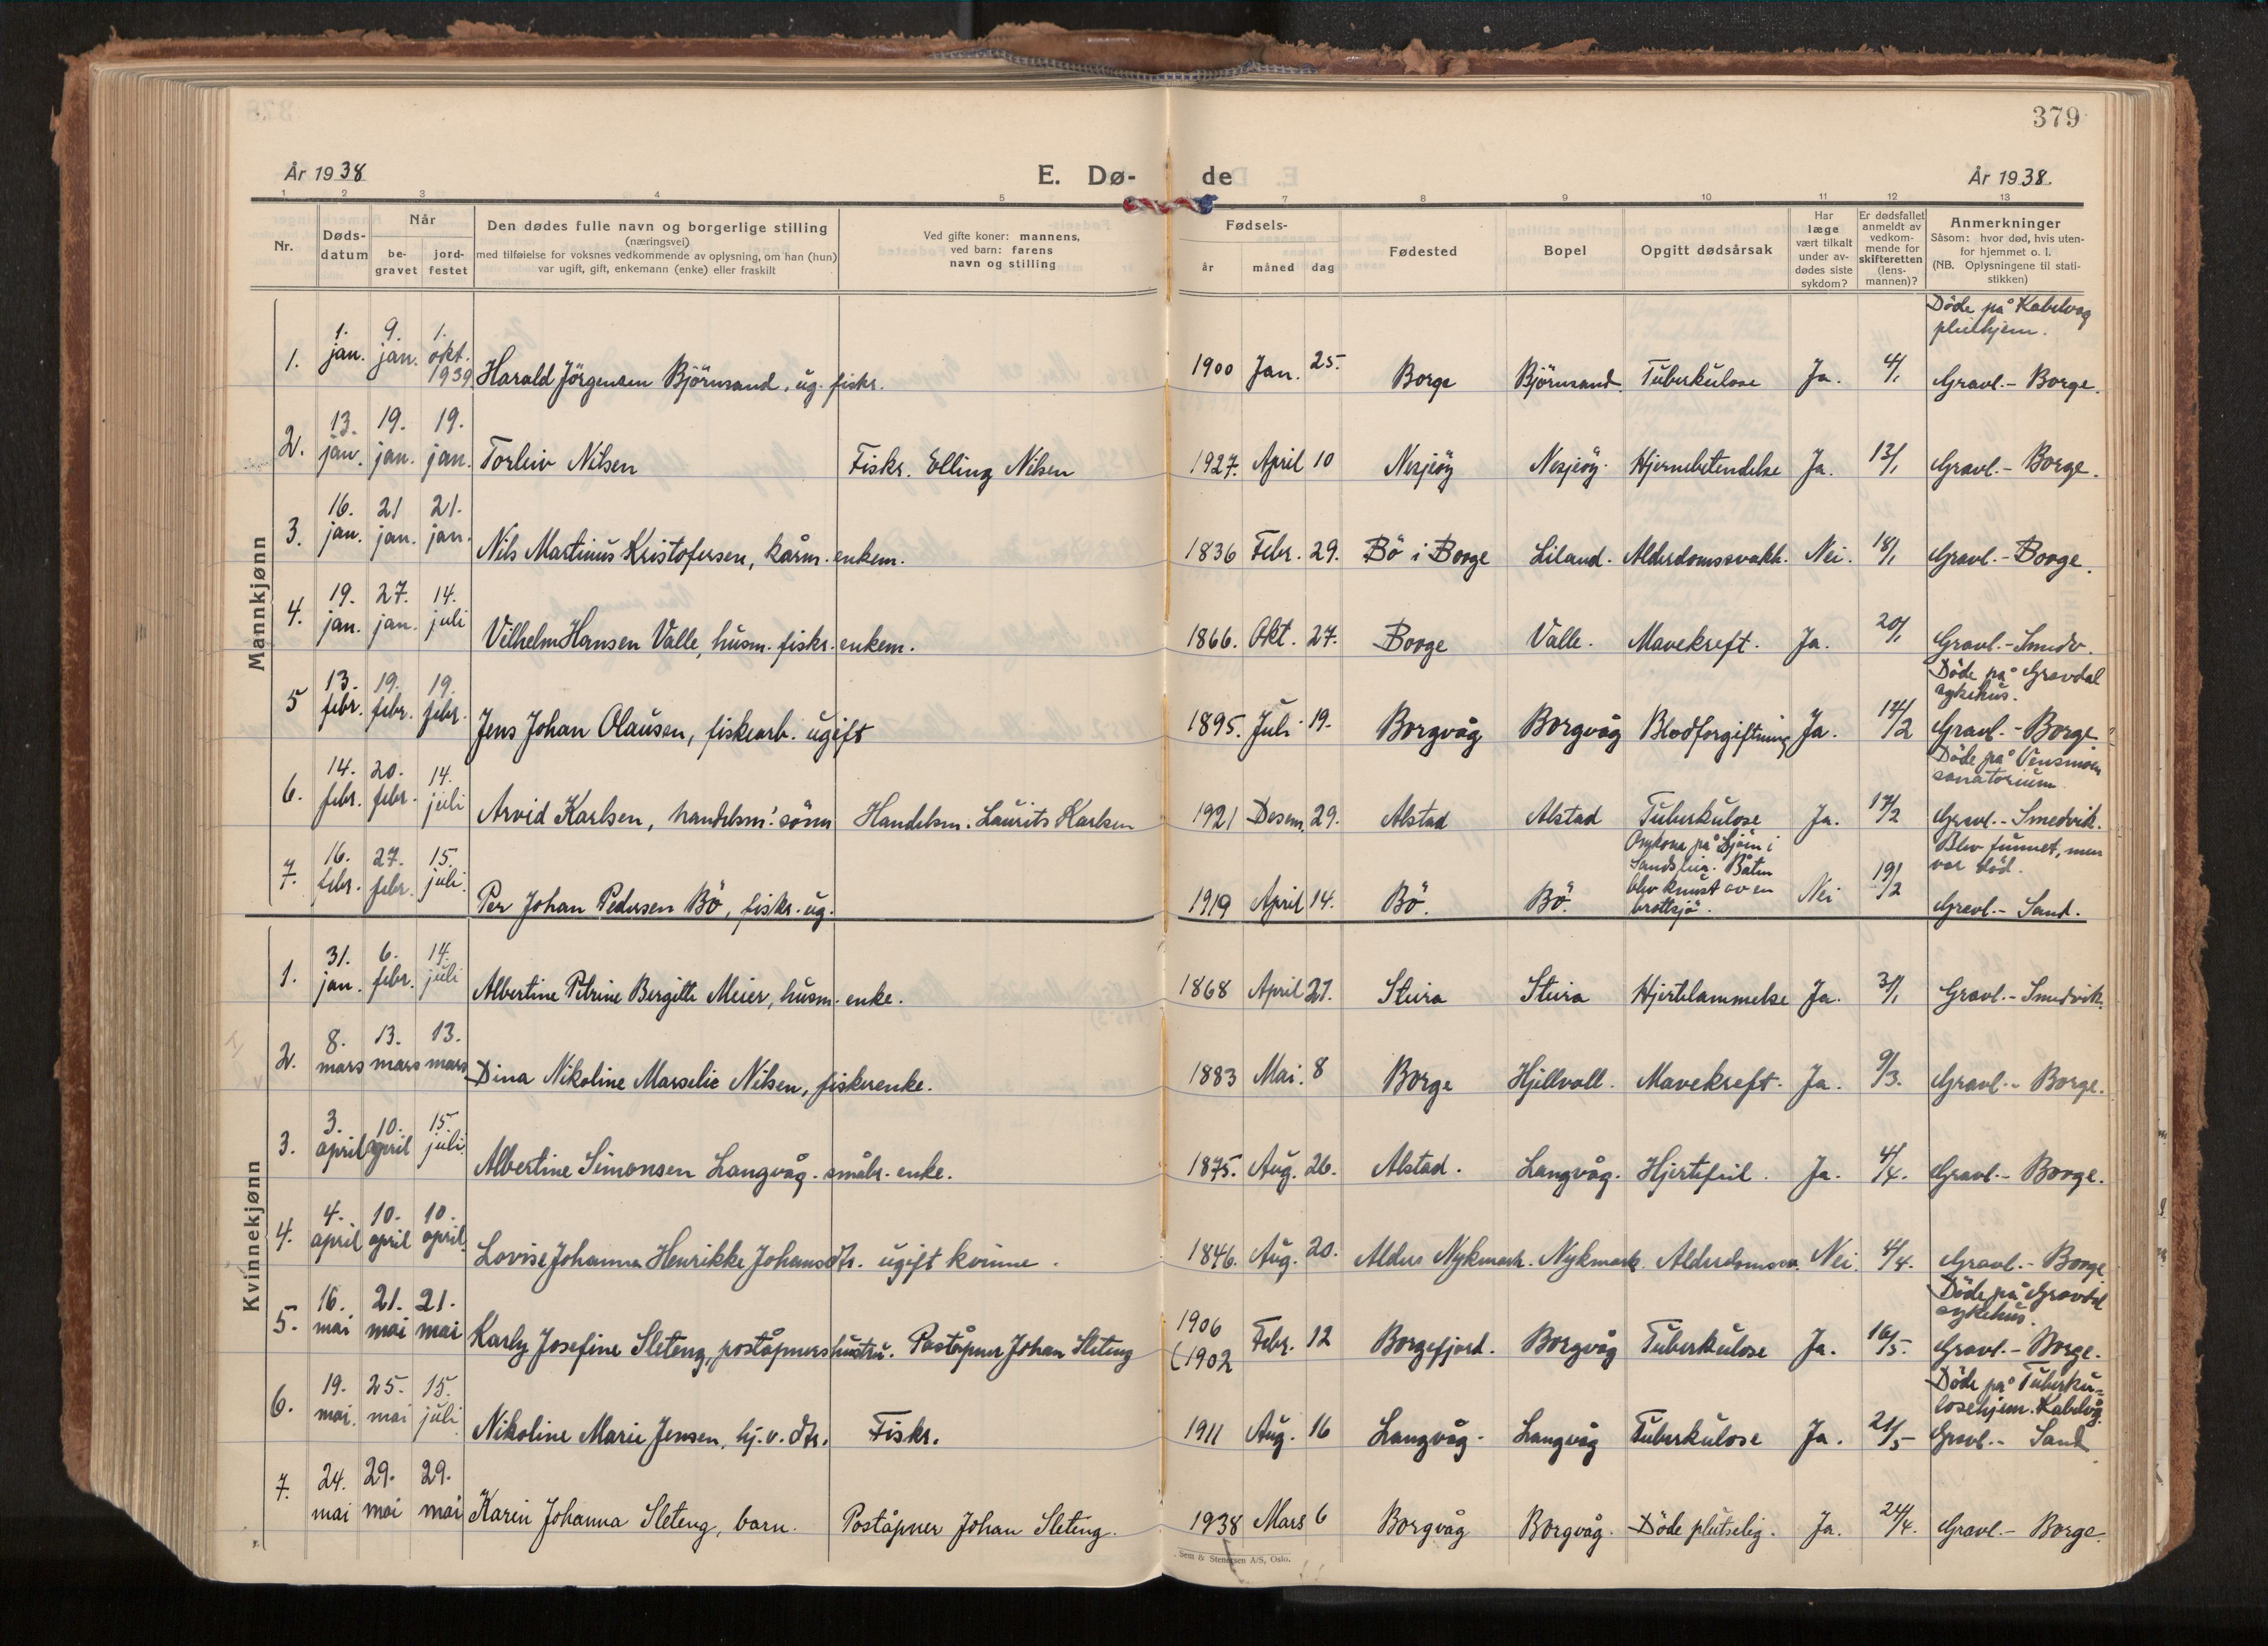 379
År 1938
E. Dø-
de
År 1938.
1 2 3 4 5 7 8 9 10 11 12 13
Nr.
Døds-
datum
Når
be-
gravet
jord-
festet
Den dødes fulle navn og borgerlige stilling
(næringsvei)
med tilføielse for voksnes vedkommende av oplysning, om han (hun)
var ugift, gift, enkemann (enke) eller fraskilt
Ved gifte koner: mannens,
ved barn: farens
navn og stilling
Fødsels-
år måned dag
Fødested
Bopel
Opgitt dødsårsak
Har
læge
vært tilkalt
under av-
dødes siste
sykdom?
Er dødsfallet
anmeldt av
vedkom-
mende for
skifteretten
(lens-
mannen)?
Anmerkninger
Såsom: hvor död, hvis uten-
for hjemmet o. l.
(NB. Oplysningene til stati-
stikken)
Mannkjønn
1. 1. jan. 9. jan. 1. okt. 1939 Harald Jörgensen Björnsand, ug. fiskr. 1900 Jan. 25. Borge Björnsand Tuberkulose Ja. 4/1 Döde på Kabelvag pleihjem. Gravl. - Borge.
2. 13. jan. 19. jan. 19. jan. Torleiv Nilsen Fiskr. Elling Nilsen 1927. April 10 Nesjeöy Nesjeöy. Hjernebetendelse Ja. 13/1 Gravl. - Borge.
3. 16. jan. 21 jan. 21. jan. Nils Martinus Kristofersen, kårm. enkem. 1836 Febr. 29. Bö i Borge Liland. Alderdomssvakh. Nei. 18/1 Gravl. - Borge.
4. 19. jan. 27. jan. 14. juli Vilhelm Hansen Valle, husm. fiskr. enkem. 1866. Okt. 27. Borge Valle. Mavekreft. Ja. 20/1 Gravl. - Smedv.
5 13. febr. 19. febr. 19. febr. Jens Johan Olausen, fiskearb. ugift 1895. Juli 19. Borgvåg Borgvåg Blodforgiftning Ja. 17/2 Döde på Gravdal sykehus. Gravl. - Borge
6. 14. febr. 20. febr. 14. juli Arvid Karlsen, handelsm: sönn Handelsm. Laurits Karlsen 1921 Desem. 29. Alstad Alstad Tuberkulose Ja. 17/2 Döde på Vensmoen sanatorium Gravl. - Smedvik.
7. 16. febr. 27. febr. 15. juli. Per Johan Pedersen Bö, fiskr. ug. 1919 April 14. Bö. Bö. Omkom på Sjöen i Båten blev knust av en brottsjö. Nei 19/2 Blev funnet, men var död. Gravl. - Sand.
Kvinnekjønn
1. 31. jan. 6. febr. 14. juli Albertine Petrine Bergitte Meier, husm. enke. 1868 April 27. Steira Steira Hjertelammelse Ja. 31/1 Gravl. - Smedvik.
2. 8. mars 13. mars 13. mars Dina Nikoline Marselie Nilsen, fiskerenke. 1883 Mai. 8 Borge Hjellvoll. Mavekreft. Ja. 9/3. Gravl. - Borge.
3. 3. april 10. april 15. juli Albertine Simonsen Langvåg. småbr. enke. 1875. Aug. 26. Alstad. Langvåg. Hjertefeil. Ja. 4/4. Gravl. - Borge.
4. 4. april 10. april 10. april. Lovise Johanna Henrikke Johansdtr. ugift kvinne. 1846. Aug. 20. Nykmark. Nykmark. Alderdomssv. Nei. 4/4. Gravl. - Borge
5. 16. mai 21. mai 21. mai Karly Josefine Sleteng, poståpners hustru. Poståpner Johan Sleteng 1906 (1902 Febr. 12 Borgefjord. Borgvåg Tuberkulose Ja. 16/5. Döde på Gravdal sykehus. Gravl. - Borge.
6. 19. mai. 25. mai 15. juli Nikoline Marie Jensen, hj. v. dtr. Fiskr. 1911 Aug. 16 Langvåg. Langvåg Tuberkulose Ja. 21/5 Döde på Tuberku- losehjem. Kabelvåg Gravl. - Sand
7. 24. mai 29. mai 29. mai Karin Johanna Sleteng, barn. Poståpner Johan Sleteng. 1938 Mars 6 Borgvåg Borgvåg. Döde plutselig. Ja. 24/4. Gravl. - Borge.
Sem & Stenersen A/S, Oslo.